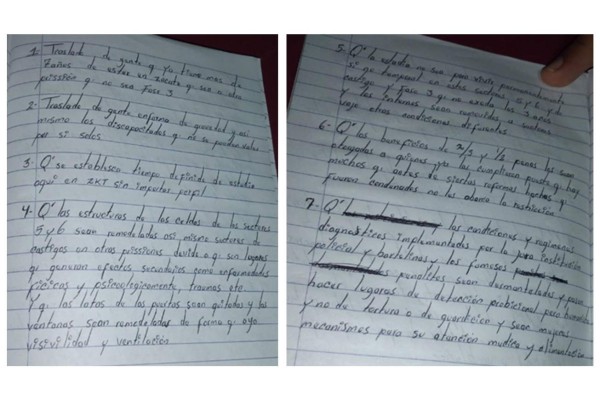 1- Traslado de gente q ya tiene mas de
7 años de estar en Zacate q sea a otra
prissión q no sea Fase 3
2- Traslado de gente enferma de gravedad y asi
mismo los discapacitados q no se puedan valer
por si solos
3- Q' se establesca tiempo definido de estadia
aqui en ZKT sin importar perfil
4- Q' las estructuras de las celdas de los sectores
5 y 6 sean remodeladas asi mismo sectores de
castigos en otras prissiones devido a q son lugares
q generan efectos secundarios como enfermedades
ficicas y psicologicamente, traumas etc.
Y q las latas de las puertas sean quitadas y las
ventanas sean remodeladas de forma q aya
visivilidad y ventilación
5- Q' la estadia no sea para vivir permanentemente
si no temporal en estos sectores 5 y 6 y de
castigo y Fase 3 q no exeda los 3 años
y los internos sean removidos a sectores
vajo otras condiciones diferentes
6- Q' los beneficios de 2/3 y 1/2 penas les sean
otorgados a quienes ya las cumplieron puesto q hay
muchos q antes de siertas reformas hechas q
fueron condenados no les abarca la restricción
7- Q' las condiciones y regimenes
diagnósticos implementados por la institución
policial y bartolinas y los famosos
penalitos sean dismantelados y pasen
hacer lugares de detención probicional para humanos
y no de tortura o de guarnición y sean mejores
mecanismos para su atención medica y alimentación